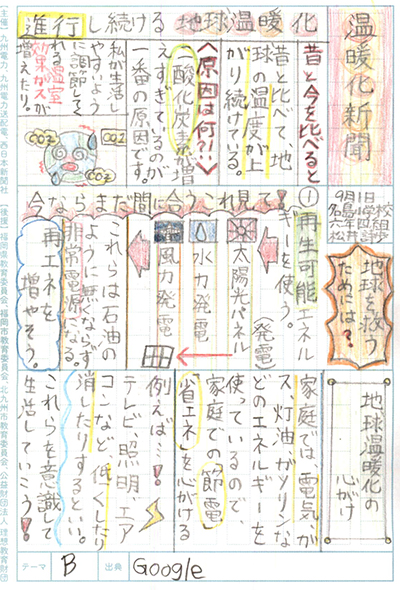 温暖化新聞
進行し続ける地球温暖化
昔と今を比べると
昔と比べて、地
球の温度が上
がり続けている。
〈原因は何?!〉
二酸化炭素が増
えすぎているのが
一番の原因です。
私が生活し
やすいように
に調節してく
れる温室
効果ガスが
増えたり。
CO2
CO2
CO2
地球を救う
ためには?
今ならまだ間に合うこれ見て!
①再生可能エネル
ギーを使う。
(発電)
太陽光パネル
水力発電
風力発電
これらは石油の
ように無くならず
非常電源になる。
再エネを
増やそう。
地球温暖化の
心がけ
家庭では電気、が
ス、灯油、ガソリンな
どのエネルギーを
使っているので、
家庭での「節電」
「省エネ」を心がける
例えば…!
テレビ、照明、エア
コンなど、低くしたり
消したりするといい。
これらを意識して
生活していこう!
テーマ B 出典 Google
【主催】九州電力、九州電力送配電、西日本新聞社 【後援】福岡県教育委員会、福岡市教育委員会、北九州市教育委員会、公益財団法人 理想教育財団